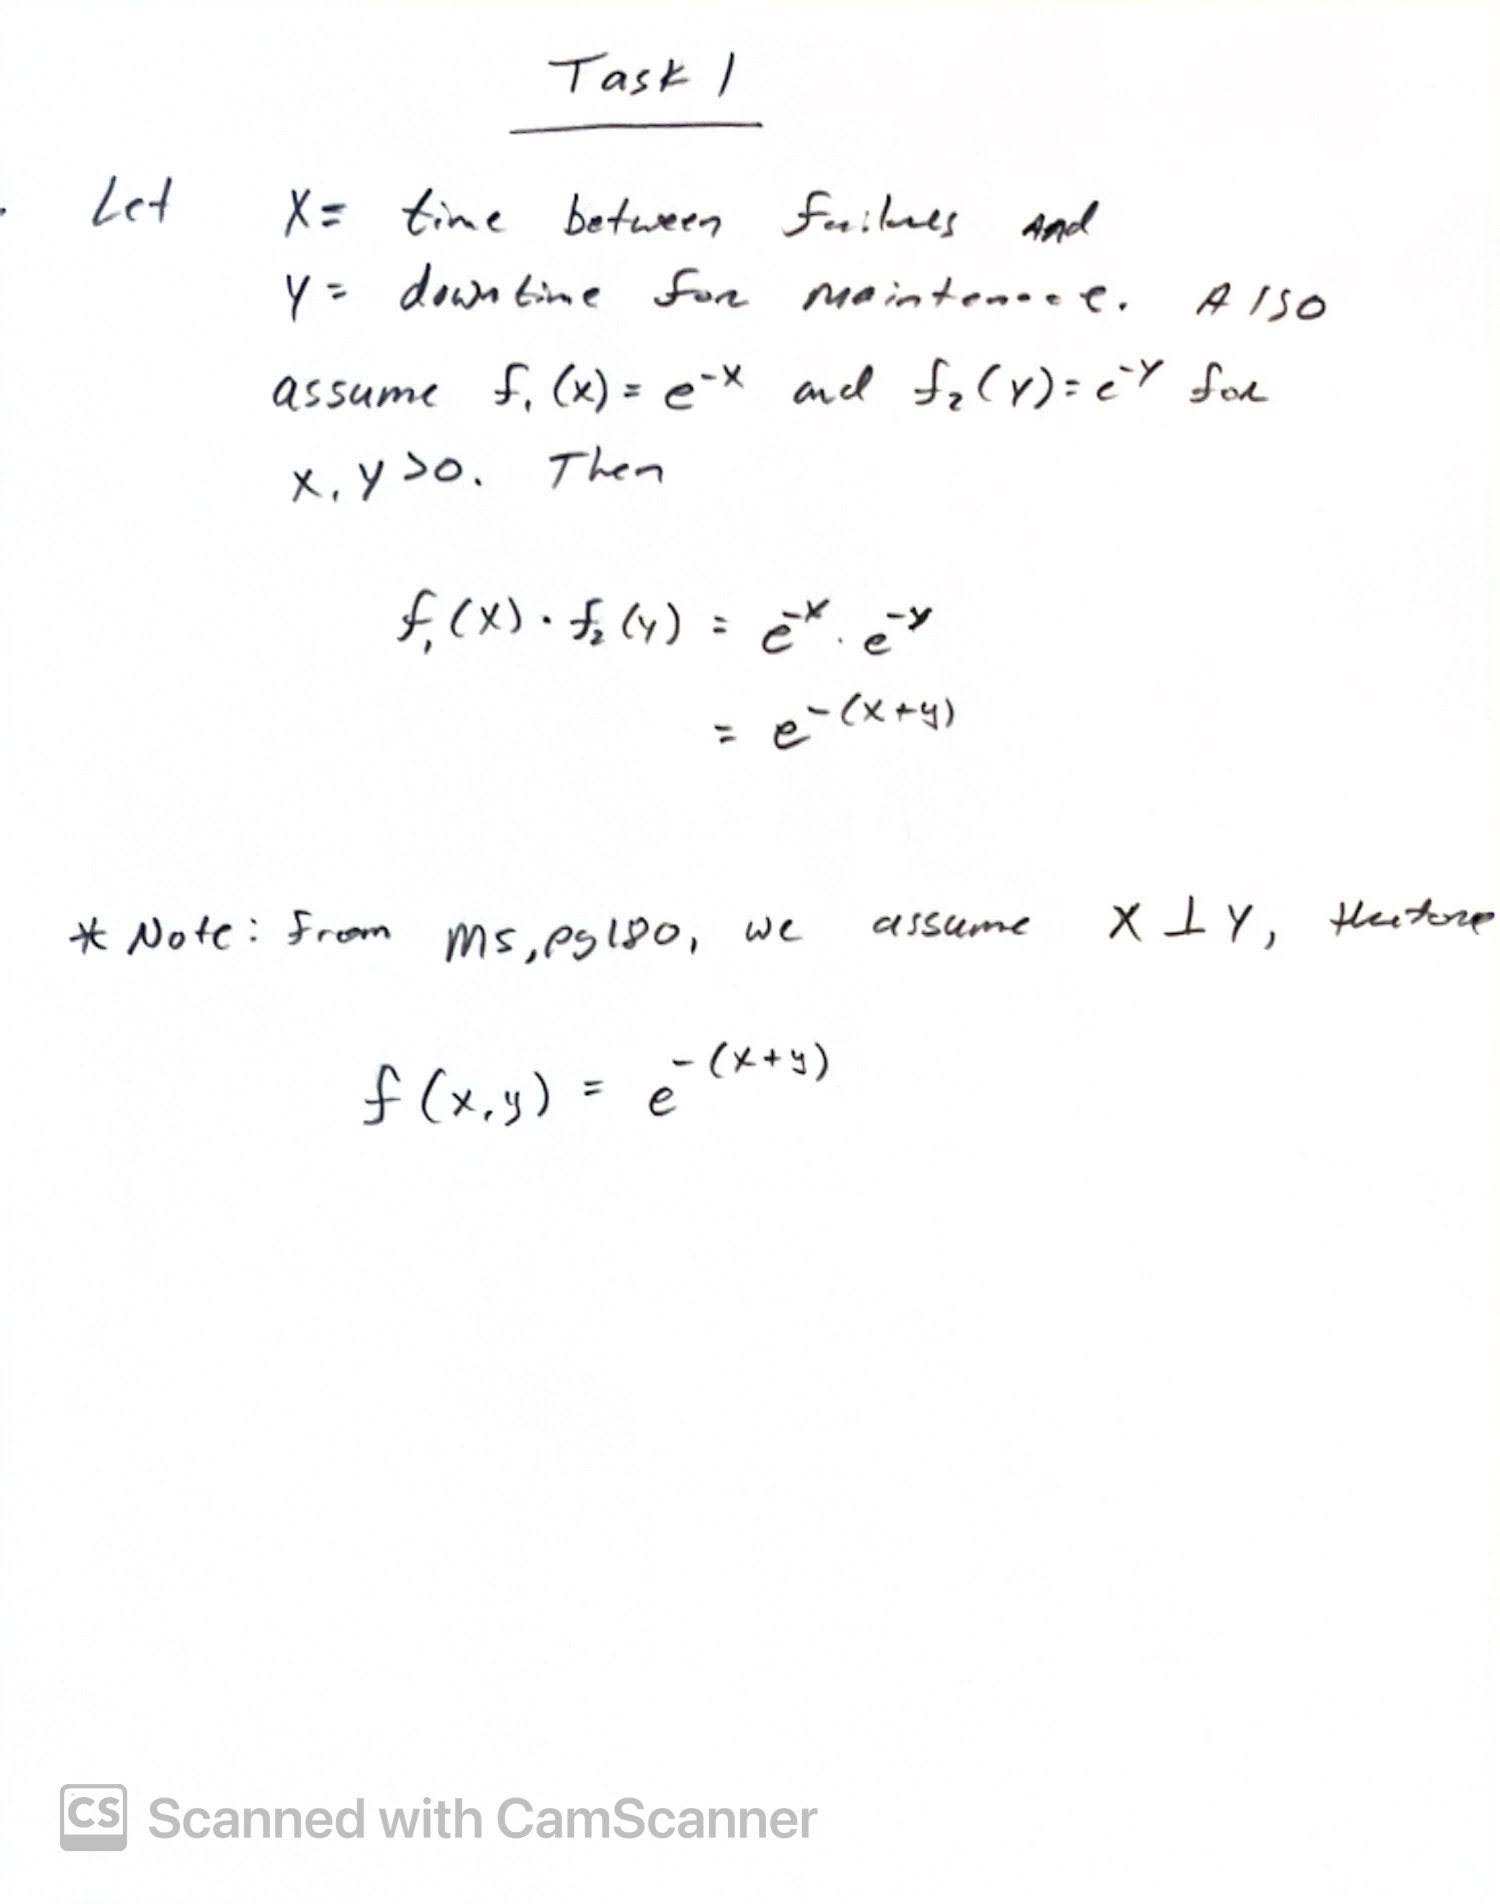 Task 1
Let X = time between failures and
Y = downtime for maintenance. Also
assume f₁(x) = e^-x and f₂(y) = e^-y for
x, y > 0. Then
f₁(x) · f₂(y) = e^-x · e^-y
= e^-(x+y)
* Note: From MS, pg 180, we assume X ⊥ Y, therefore
f(x,y) = e^-(x+y)
CS Scanned with CamScanner